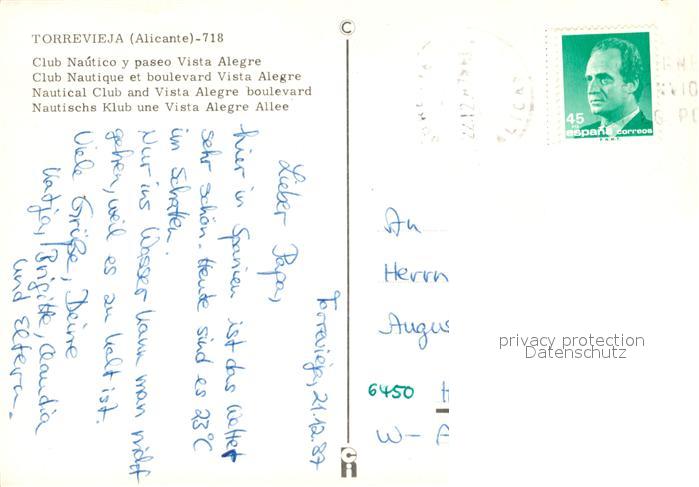 TORREVIEJA (Alicante)-718
Club Naútico y paseo Vista Alegre
Club Nautique et boulevard Vista Alegre
Nautical Club and Vista Alegre boulevard
Nautischs Klub une Vista Alegre Allee
Torrevieja, 21.12.87
Lieber Papa,
hier in Spanien ist das Wetter
sehr schön. Heute sind es 23°C
im Schatten.
Nur ins Wasser kann man nicht
gehen, weil es zu kalt ist.
Viele Grüße, Deine
Katja, Brigitte, Claudia
und Eltern.
45
españa correos
An
Herrn
Augus
6450 H
W-
privacy protection
Datenschutz